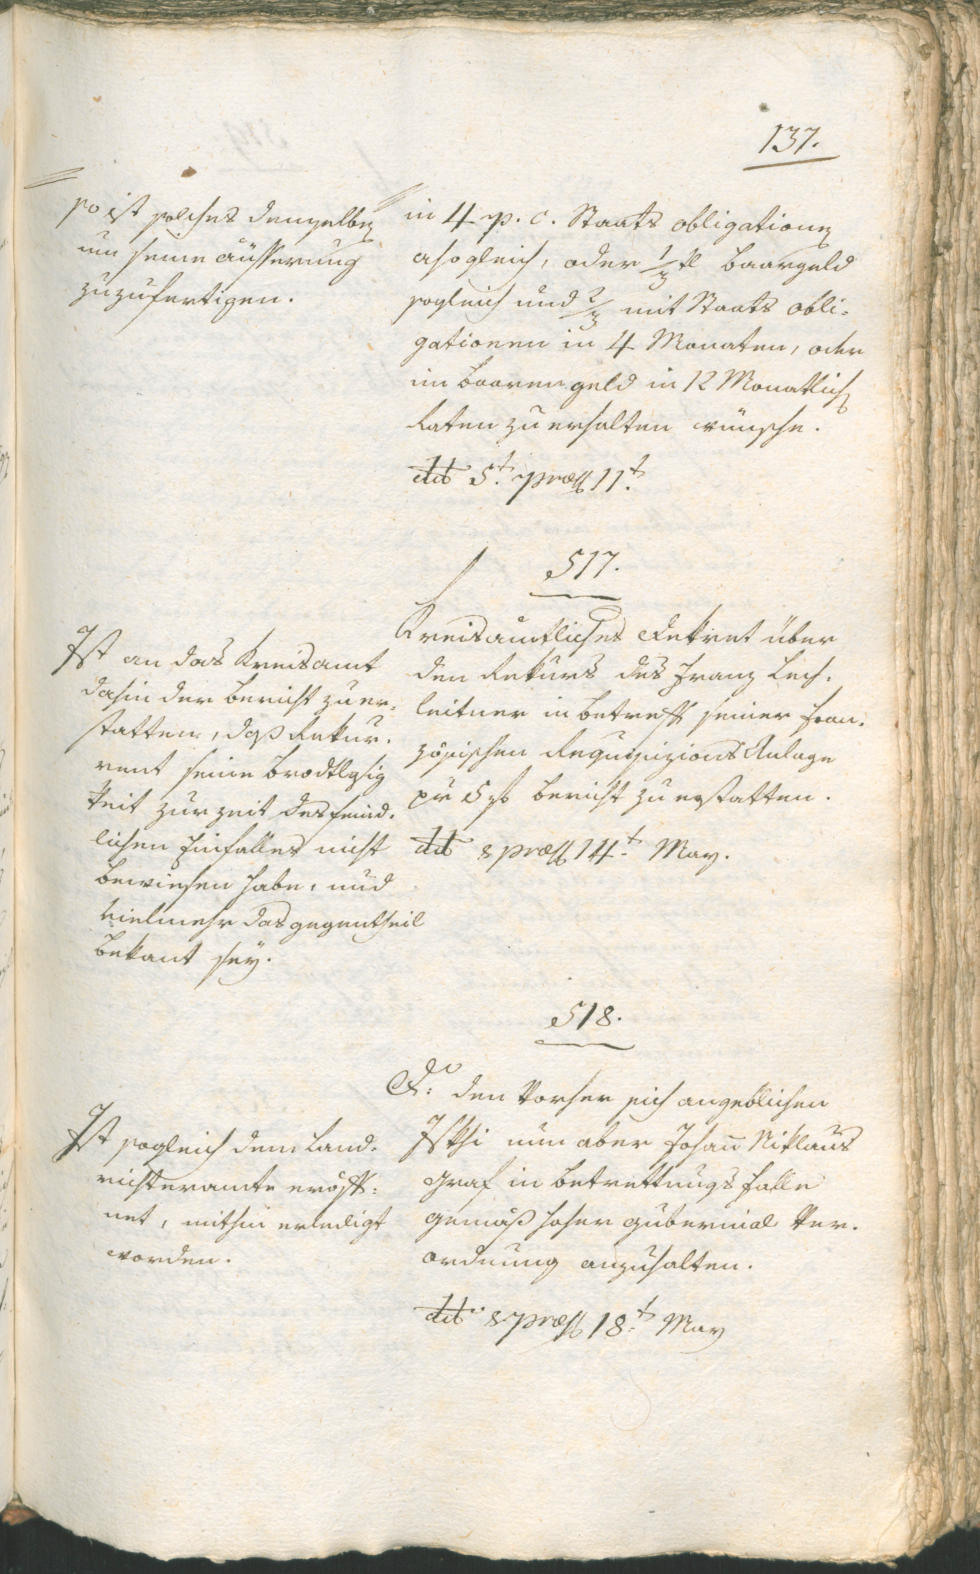 137.
so ist solches demselben
um seine äusserung
zuzufertigen.
in 4 p. c. Staats obligationen
alsogleich, oder 1/3 tl baargeld
sogleich und 2/3 mit Staats obli-
gationen in 4 Monaten, oder
im baaren geld in 12 Monatlichen
Raten zu erhalten wünsche.
ddo 5t. præs 11t.
517.
Ist an das Kreisamt
dahin der bericht zu er-
statten, daß Rekur-
rent seine brodtlosig
keit zur zeit des feind-
lichen Einfalles nicht
bewiesen habe, und
vielmehr das gegentheil
bekant sey.
Kreisamtliches Dekret über
den Rekurs des Franz Lech-
leitner in betreff seiner fran-
zösischen Requisizions Anlage
pr 5 f bericht zu erstatten.
ddo & præs 14t. May.
518.
Ist sogleich dem Land-
richteramte eröff-
net, mithin erledigt
worden.
Do. den vorher sich angeblichen
nun aber Johann Niklaus
Graf in betrettungs falle
gemäß hoher gubernial Ver-
ordnung anzuhalten.
ddo. & præs 18t. May